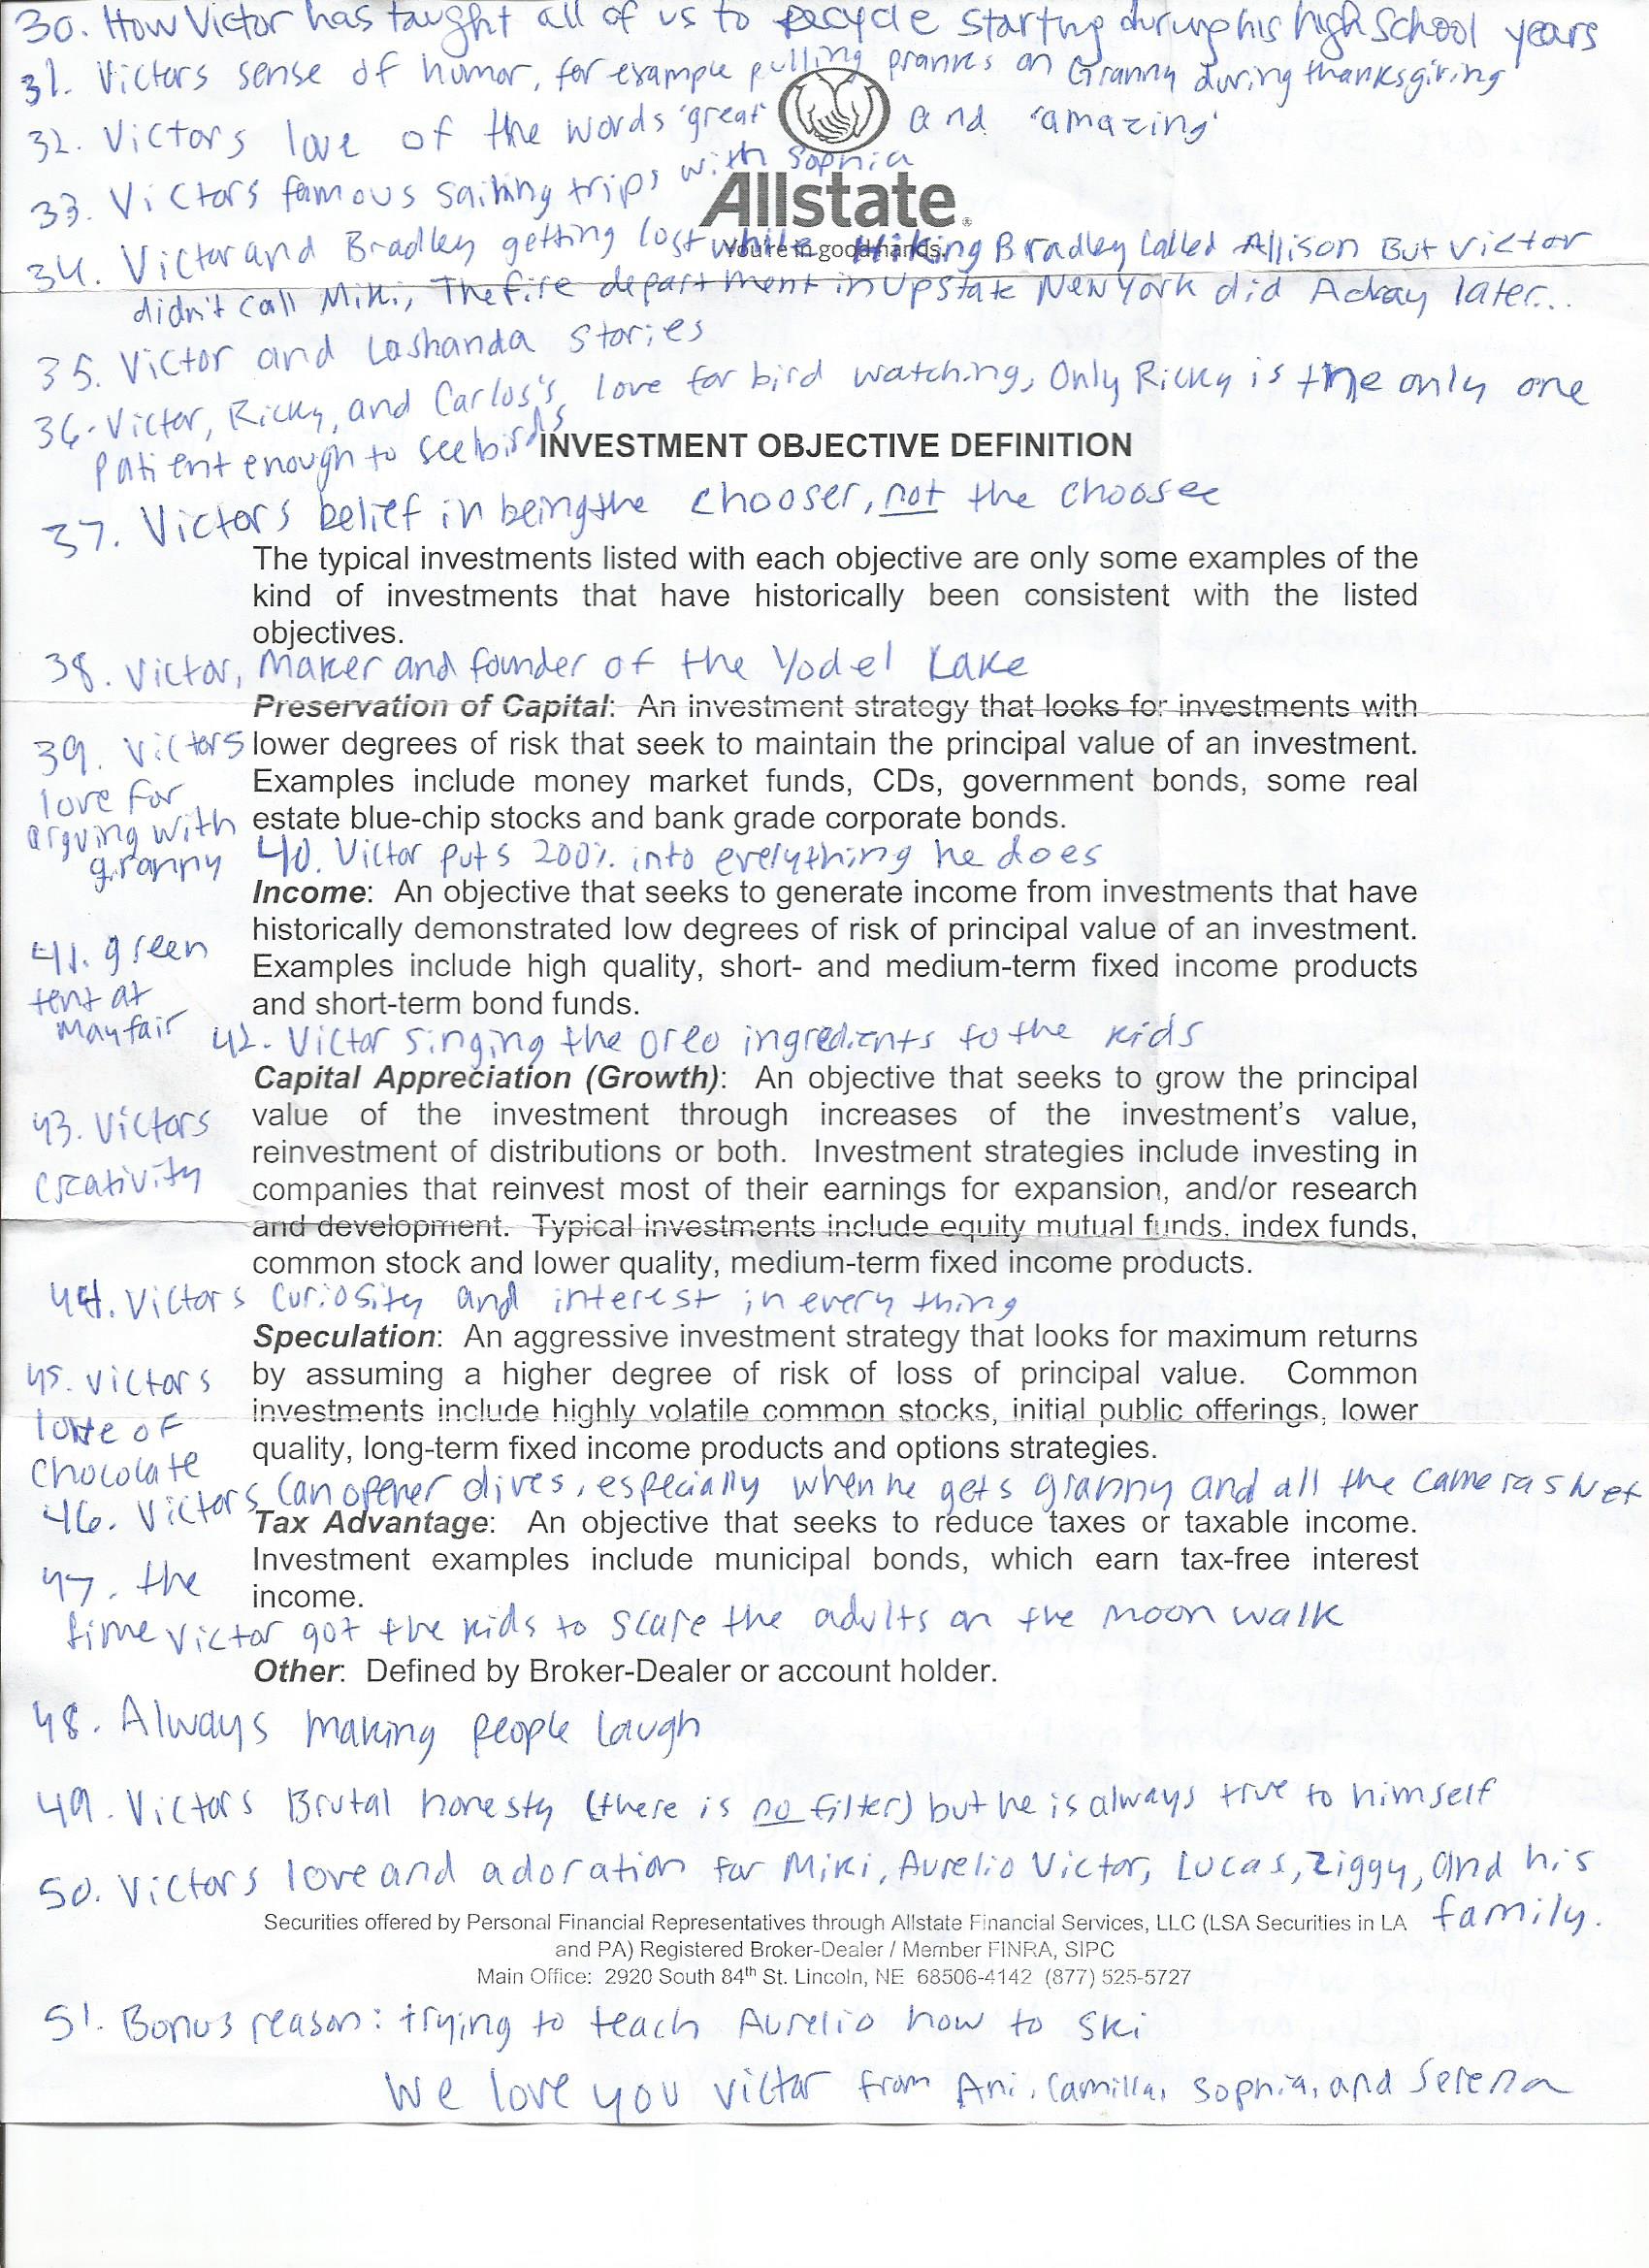 30. How Victor has taught all of us to recycle starting during his high school years
31. Victors sense of humor, for example pulling pranks on Granny during thanksgiving
32. Victors love of the words 'great' and 'amazing'
33. Victors famous sailing trips with Sophia
Allstate®
You're in good hands.
34. Victor and Bradley getting lost while Hiking Bradley Called Allison But Victor
didn't call Miki, The fire department in Upstate New York did A day later...
35. Victor and Lashanda Stories
36. Victor, Ricky, and Carlos's love for bird watching, Only Ricky is the only one
patient enough to see birds
INVESTMENT OBJECTIVE DEFINITION
37. Victors belief in being the chooser, not the choosee
The typical investments listed with each objective are only some examples of the
kind of investments that have historically been consistent with the listed
objectives.
38. Victor, Maker and founder of the Yodel Lake
Preservation of Capital: An investment strategy that looks for investments with
lower degrees of risk that seek to maintain the principal value of an investment.
Examples include money market funds, CDs, government bonds, some real
estate blue-chip stocks and bank grade corporate bonds.
39. Victors
love for
arguing with
granny
40. Victor puts 200% into everything he does
Income: An objective that seeks to generate income from investments that have
historically demonstrated low degrees of risk of principal value of an investment.
Examples include high quality, short- and medium-term fixed income products
and short-term bond funds.
41. green
tent at
Mayfair
42. Victor singing the oreo ingredients to the kids
Capital Appreciation (Growth): An objective that seeks to grow the principal
value of the investment through increases of the investment's value,
reinvestment of distributions or both. Investment strategies include investing in
companies that reinvest most of their earnings for expansion, and/or research
and development. Typical investments include equity mutual funds, index funds,
common stock and lower quality, medium-term fixed income products.
43. Victors
creativity
44. Victors curiosity and interest in every thing
Speculation: An aggressive investment strategy that looks for maximum returns
by assuming a higher degree of risk of loss of principal value. Common
investments include highly volatile common stocks, initial public offerings, lower
quality, long-term fixed income products and options strategies.
45. Victors
love of
chocolate
46. Victors Can opener dives, especially when he gets granny and all the cameras wet
Tax Advantage: An objective that seeks to reduce taxes or taxable income.
Investment examples include municipal bonds, which earn tax-free interest
income.
47. the
time Victor got the kids to scare the adults on the moon walk
Other: Defined by Broker-Dealer or account holder.
48. Always making people laugh
49. Victors Brutal honesty (there is no filter) but he is always true to himself
50. Victors love and adoration for Miki, Aurelio Victor, Lucas, Ziggy, and his
family.
Securities offered by Personal Financial Representatives through Allstate Financial Services, LLC (LSA Securities in LA
and PA) Registered Broker-Dealer / Member FINRA, SIPC
Main Office: 2920 South 84th St. Lincoln, NE 68506-4142 (877) 525-5727
51. Bonus reason: trying to teach Aurelio how to ski
We love you Victor from Ani, Camilla, Sophia, and Serena